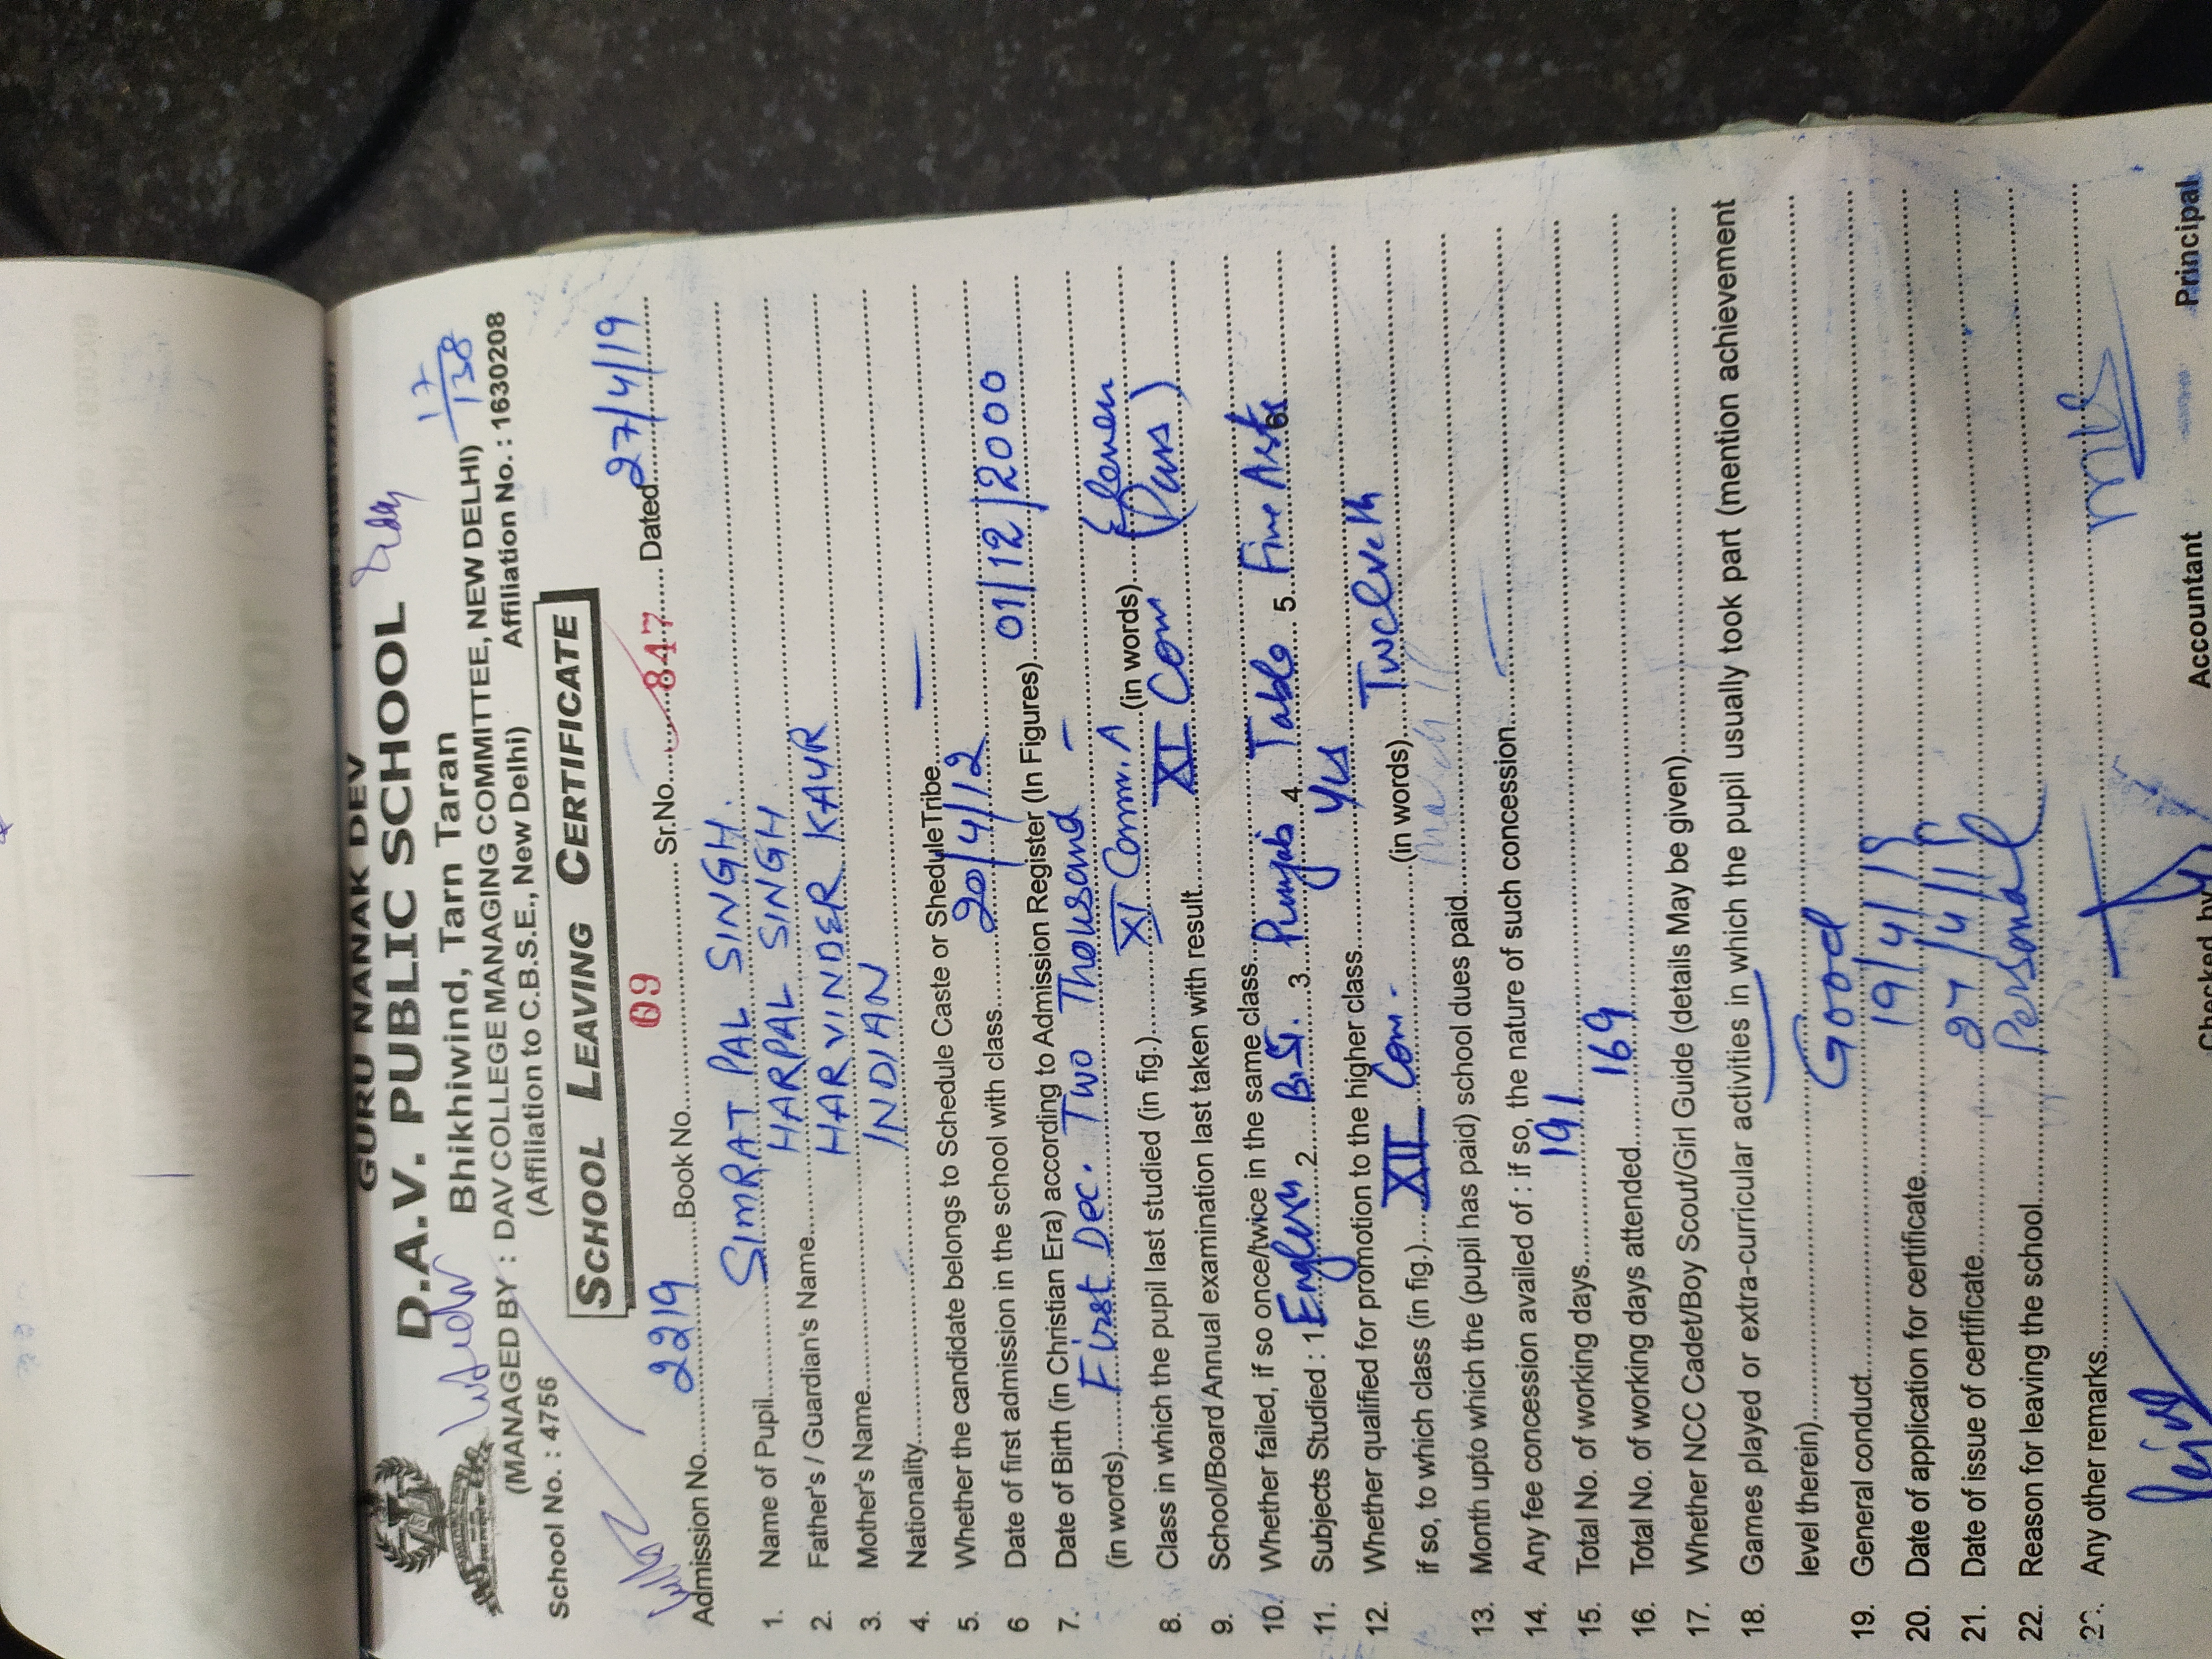 GURU NANAK DEV
D.A.V. PUBLIC SCHOOL
Bhikhiwind, Tarn Taran 17/138
(MANAGED BY : DAV COLLEGE MANAGING COMMITTEE, NEW DELHI)
(Affiliation to C.B.S.E., New Delhi)
School No. : 4756 Affiliation No. : 1630208
SCHOOL LEAVING CERTIFICATE
Admission No. 2219 Book No. 09 Sr.No. 847 Dated 27/4/19
1. Name of Pupil SIMRAT PAL SINGH.
2. Father's / Guardian's Name HARPAL SINGH
3. Mother's Name HARVINDER KAUR
4. Nationality INDIAN
5. Whether the candidate belongs to Schedule Caste or SheduleTribe —
6 Date of first admission in the school with class 20/4/12
7. Date of Birth (in Christian Era) according to Admission Register (In Figures) 01/12/2000
(in words) First Dec. Two Thousand -
8. Class in which the pupil last studied (in fig.) XI Comm. A (in words) Eleven
9. School/Board Annual examination last taken with result XI Com (Pass)
10. Whether failed, if so once/twice in the same class
11. Subjects Studied : 1 English 2. B.St. 3. Punjab 4. Tabla 5. Fine Arts 6
12. Whether qualified for promotion to the higher class Yes
if so, to which class (in fig.) XII Com. (in words) Twelveth
13. Month upto which the (pupil has paid) school dues paid March
14. Any fee concession availed of : if so, the nature of such concession —
15. Total No. of working days 191
16. Total No. of working days attended 169
17. Whether NCC Cadet/Boy Scout/Girl Guide (details May be given)
18. Games played or extra-curricular activities in which the pupil usually took part (mention achievement
level therein) —
19. General conduct Good
20. Date of application for certificate 19/4/19
21. Date of issue of certificate 27/4/19
22. Reason for leaving the school Personal
Any other remarks
Checked by Accountant Principal